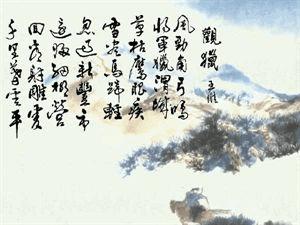 觀獵
王維
風勁角弓鳴
將軍獵渭城
草枯鷹眼疾
雪盡馬蹄輕
忽過新豐市
還歸細柳營
回看射雕處
千里暮雲平